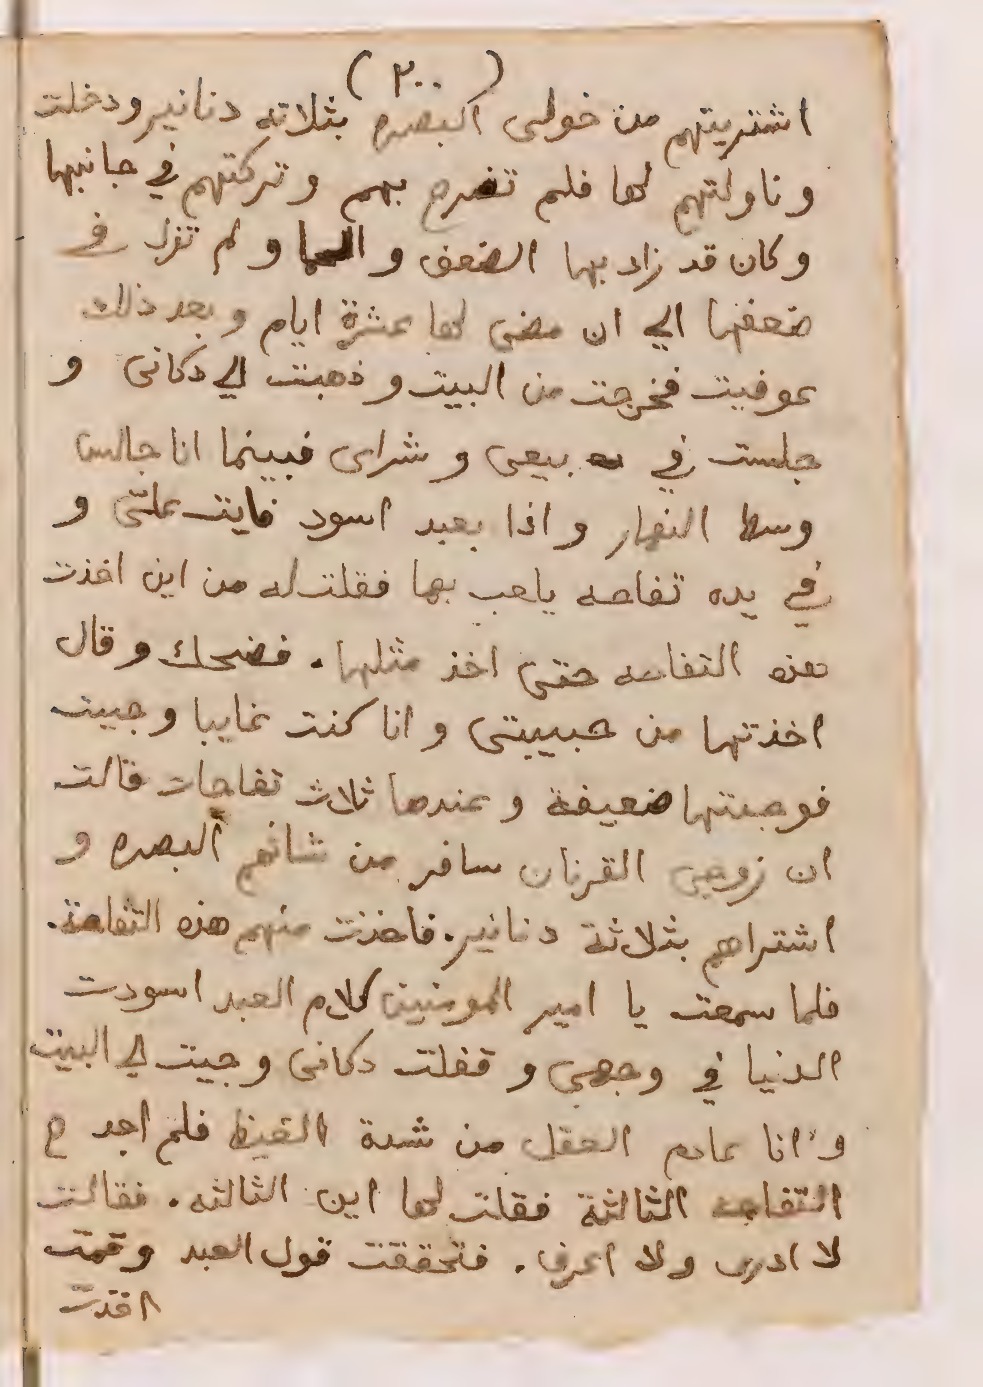 (٢٠٠)
اشتريتهم من خولى البصره بثلاته دنانير ودخلت
وناولتهم لها فلم تفرح بهم وتركتهم في جانبها
وكان قد زاد بها الضعف والحما و لم تزل في
ضعفها الي ان مضى لها عشرة ايام وبعد ذلك
عوفيت فخرجت من البيت وذهبت الي دكانى و
جلست في بيعى وشراى فبينما انا جالس
وسط النهار واذا بعبد اسود فايت على و
في يده تفاحه يلعب بها فقلت له من اين اخذت
هذه التفاحه حتى اخذ مثلها. فضحك وقال
اخذتها من حبيبتى وانا كنت غايبا وجيت
فوجدتها ضعيفة وعندها ثلاث تفاحات قالت
ان زوجى القرنان سافر من شانهم البصره و
اشتراهم بثلاثة دنانير. فاخذت منهم هذه التفاحة.
فلما سمعت يا امير المومنين كلام العبد اسودت
الدنيا في وجهى وقفلت دكانى وجيت الي البيت
وانا عادم العقل من شدة الغيظ فلم اجد
التفاحه الثالثة فقلت لها اين الثالثه. فقالت
لا ادرى ولا اعرف. فتحققت قول العبد وقمت
اخذت